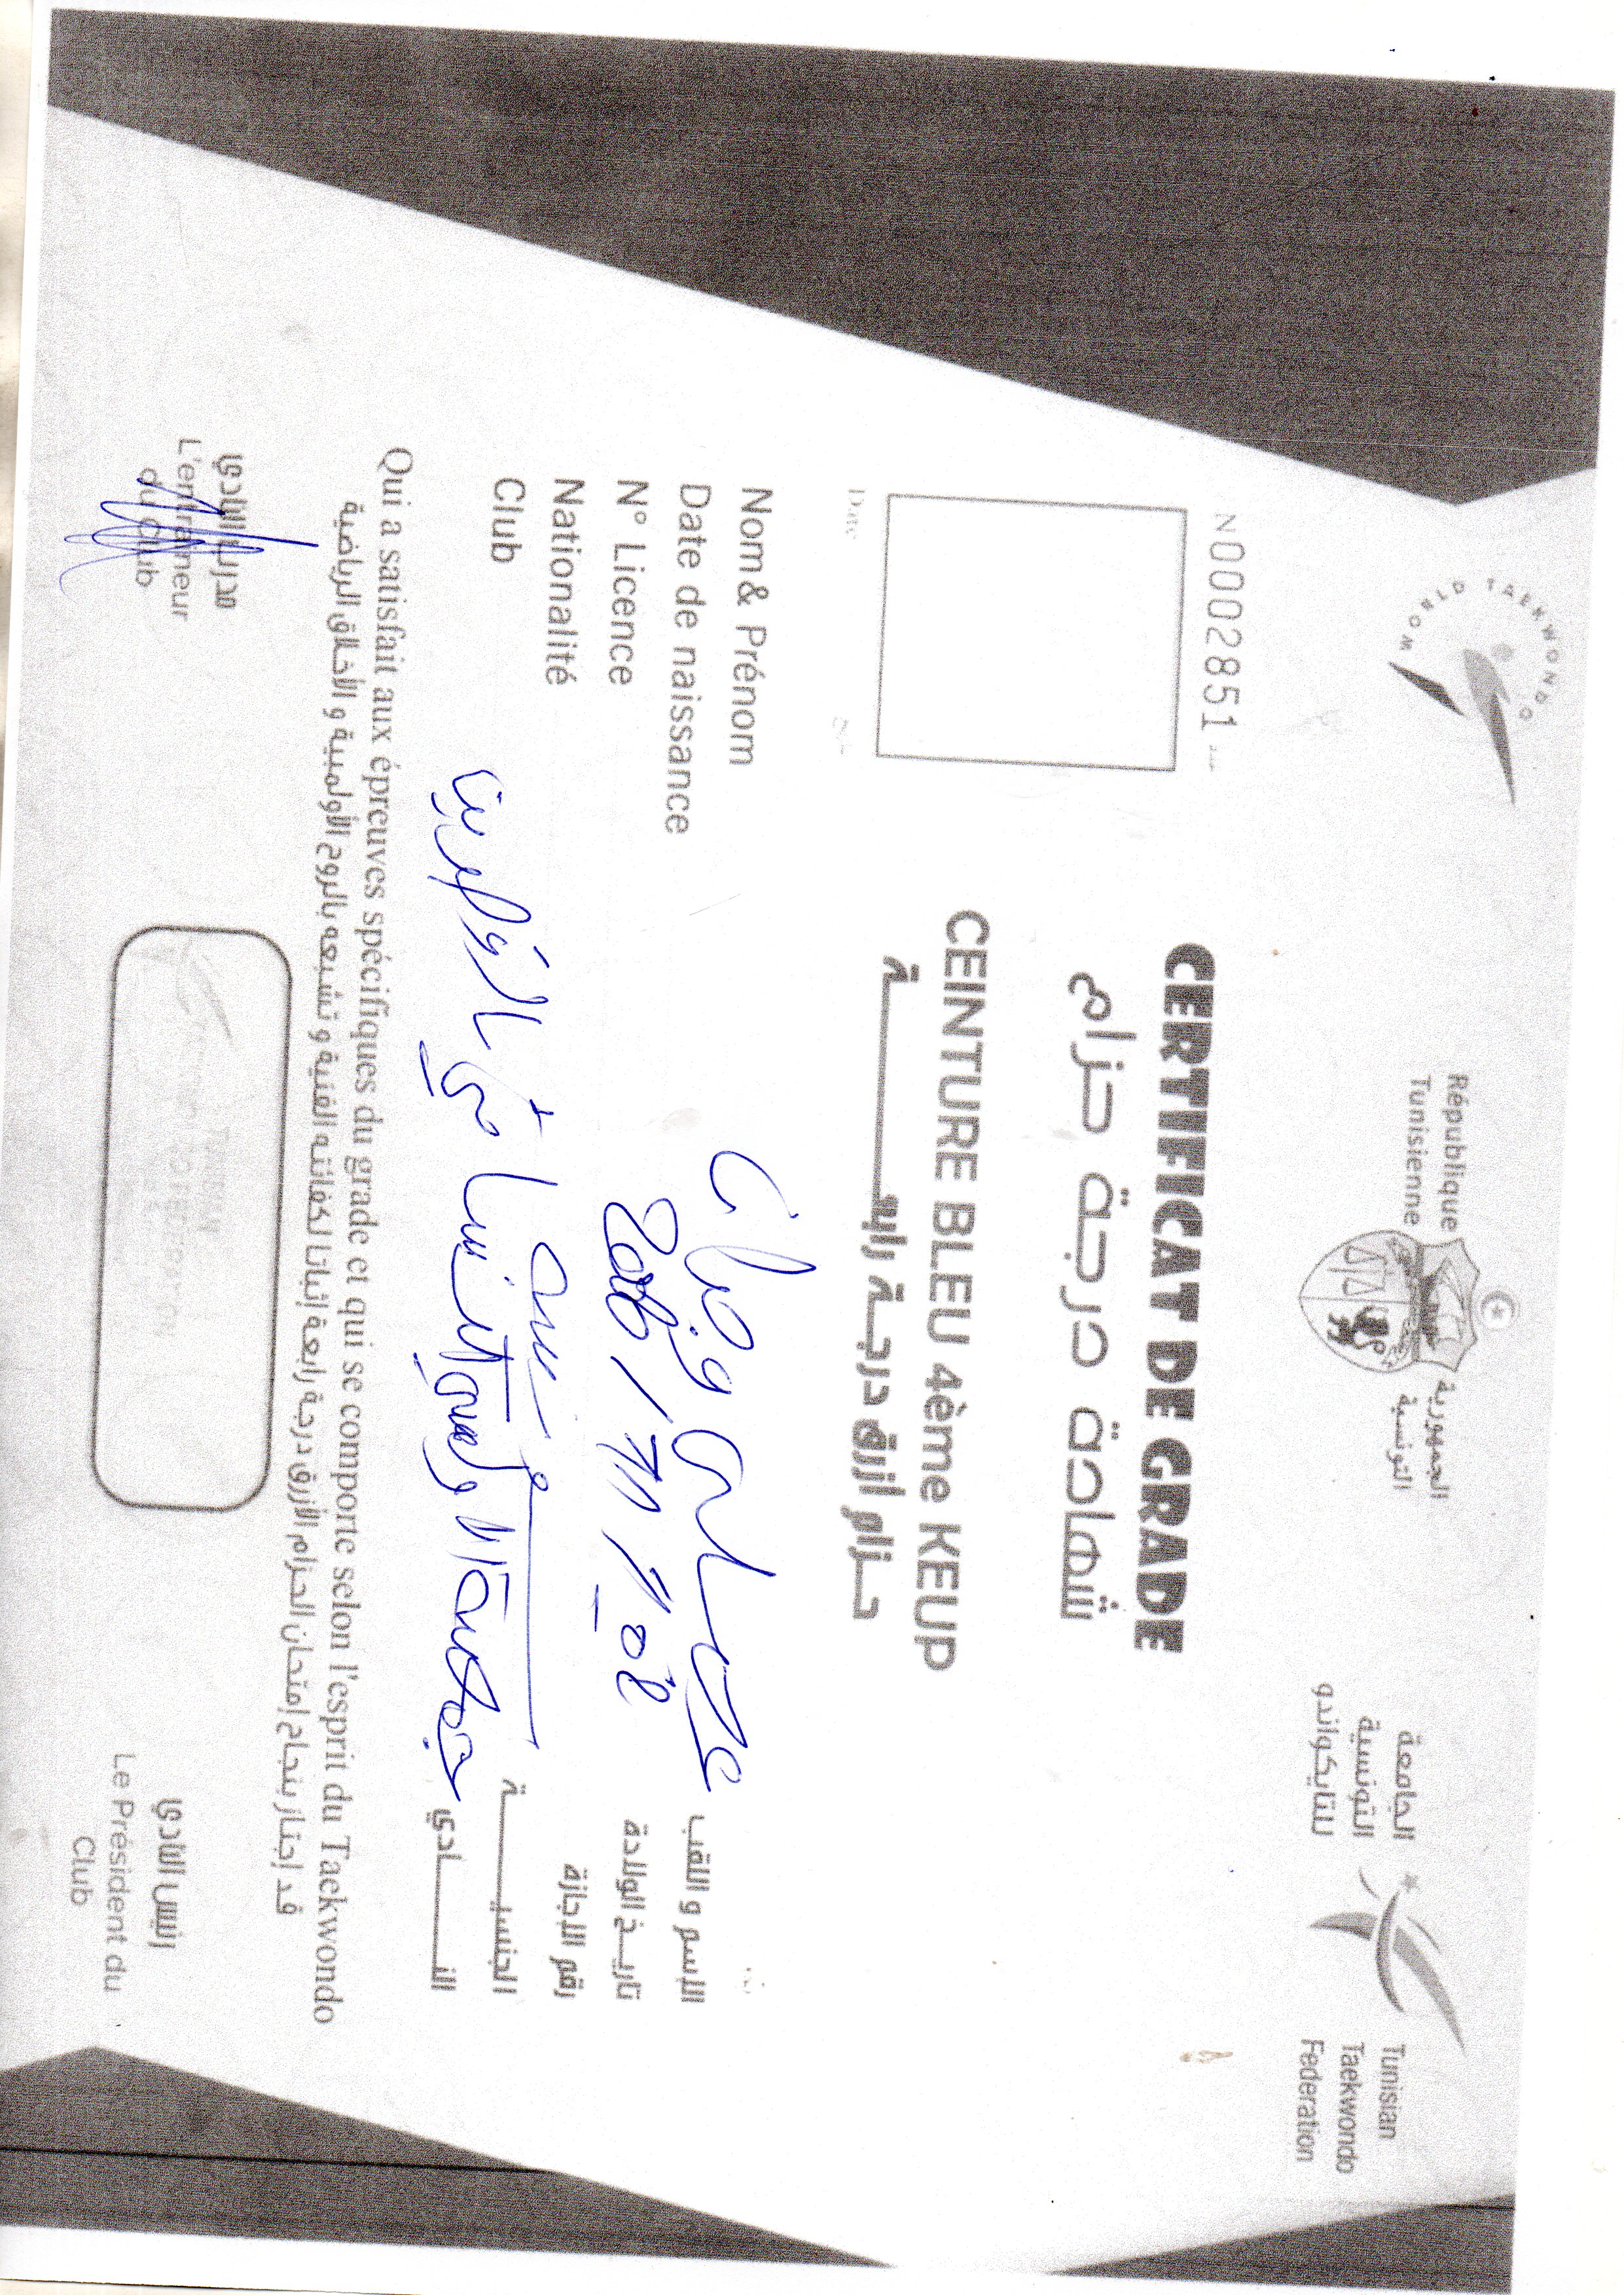 WORLD TAEKWONDO
République
Tunisienne
الجمهورية
التونسية
الجامعة
التونسية
للتايكواندو
Tunisian
Taekwondo
Federation
N0002851
CERTIFICAT DE GRADE
شهادة درجة حزام
CEINTURE BLEU 4ème KEUP
حزام أزرق درجة رابعة
Nom& Prénom
الإسم و اللقب
Date de naissance
2006 / 11 / 08
تاريخ الولادة
N° Licence
رقم الإجازة
Nationalité
تونسية
الجنسية
Club
النادي
Qui a satisfait aux épreuves spécifiques du grade et qui se comporte selon l'esprit du Taekwondo
قد إجتاز بنجاح إمتحان الحزام الأزرق درجة رابعة إثباتا لكفائته الفنية و تشبعه بالروح الأولمبية و الأخلاق الرياضية
مدرب النادي
L'entraîneur
du Club
رئيس النادي
Le Président du
Club